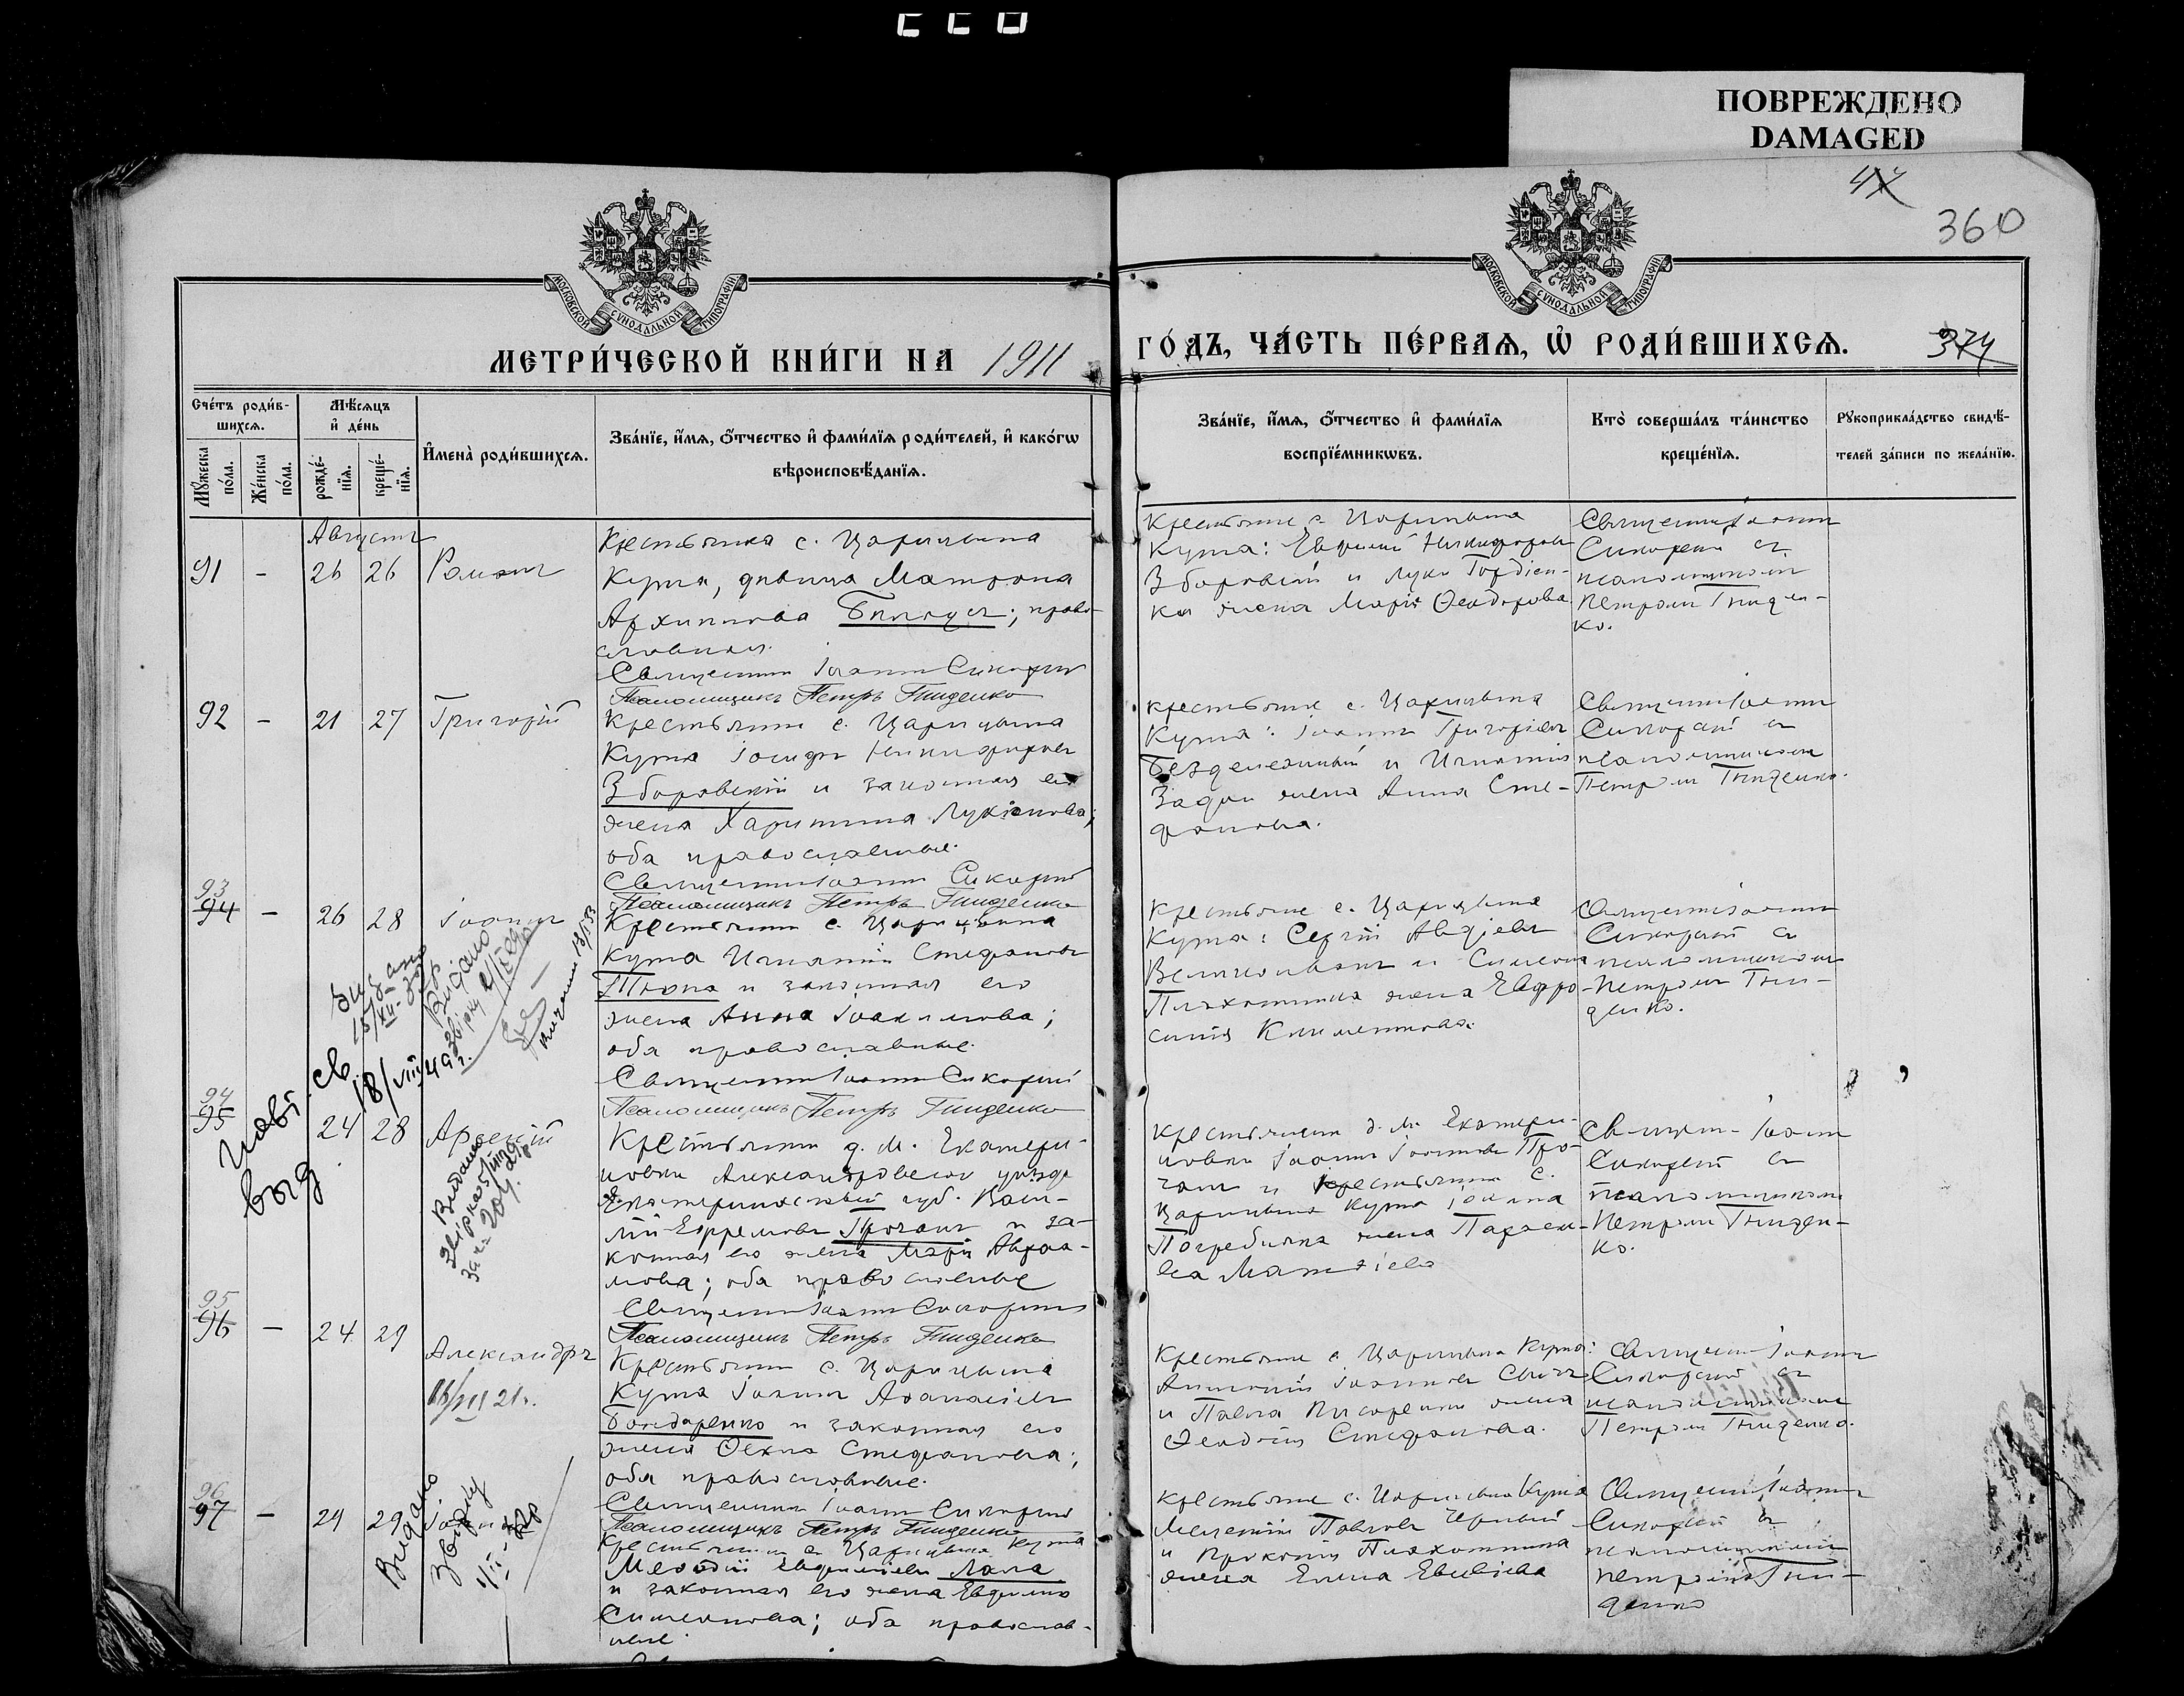 ПОВРЕЖДЕНО
DAMAGED
47
360
МОСКОВСКОЙ СУНОДАЛЬНОЙ ТИПОГРАФІИ
МОСКОВСКОЙ СУНОДАЛЬНОЙ ТИПОГРАФІИ
МЕТРИ́ЧЕСКОЙ КНИ́ГИ НА 1911
ГО́ДЪ, ЧА́СТЬ ПЕ́РВАѦ, Ѡ҆ РОДИ́ВШИХСѦ.
374
Сче́тъ роди́в-
шихсѧ.
Мꙋ́жеска по́ла.
Же́нска по́ла.
Мѣ́сѧцъ
и҆ де́нь
рожде́-
нїѧ.
креще́-
нїѧ.
И҆мена̀ роди́вшихсѧ.
Зва́нїе, и҆́мѧ, ѻ҆́тчество и҆ фами́лїѧ роди́телей, и҆ како́гѡ
вѣроисповѣ́данїѧ.
Зва́нїе, и҆́мѧ, ѻ҆́тчество и҆ фами́лїѧ
воспрїе́мникѡвъ.
Кто̀ соверша́лъ та́инство
креще́нїѧ.
Рꙋкоприкла́дство свидѣ́-
телей за́писи по жела́нїю.
Августъ
91 - 26 26 Романъ
Крестьянка с. Царицына
Кута, дѣвица Матрона
Архипова Билоусъ; право-
славная.
Священникъ Іоаннъ Сикорскій
Псаломщикъ Петръ Гниденко
Крестьяне с. Царицына
Кута: Евфимій Никифоровъ
Зборовскій и Луки Гордіен-
ка жена Марія Ѳеодорова
Священникъ Іоаннъ
Сикорскій съ
псаломщикомъ
Петромъ Гниден-
ко.
92 - 21 27 Григорій
Крестьянинъ с. Царицына
Кута Іосифъ Никифоровъ
Зборовскій и законная его
жена Харитина Лукіанова;
оба православные.
Священникъ Іоаннъ Сикорскій
Псаломщикъ Петръ Гниденко
Крестьяне с. Царицына
Кута: Іоаннъ Григоріевъ
Безденежный и Игнатія
жена Анна Сте-
фанова.
Священникъ Іоаннъ
Сикорскій съ
псаломщикомъ
Петромъ Гниденко.
93
94 - 26 28 Іоаннъ
Крестьянинъ с. Царицына
Кута Игнатій Стефановъ
и законная его
жена Анна Іоакимова;
оба православные.
Священникъ Іоаннъ Сикорскій
Псаломщикъ Петръ Гниденко
Крестьяне с. Царицына
Кута: Сергій Авдіевъ
и Симеона
Пляхотника жена Евфро-
синія Климентова.
Священникъ Іоаннъ
Сикорскій съ
псаломщикомъ
Петромъ Гни-
денко.
94
95 24 28 Арсеній
Крестьянинъ д. М. Екатери-
новки Александровскаго уѣзда
Екатеринославской губ. Васи-
лій Ефремовъ Прочанъ и за-
конная его жена Марія Авраа-
мова; оба православные
Священникъ Іоаннъ Сикорскій
Псаломщикъ Петръ Гниденко
Крестьянинъ д. М. Екатери-
новки Іоаннъ Іоанновъ Про-
чанъ и крестьянина с.
Царицына Кута Іоанна
Погребняка жена Параске-
ва Матѳіева
Священникъ Іоаннъ
Сикорскій съ
псаломщикомъ
Петромъ Гниден-
ко.
95
96 - 24 29 Александръ
Крестьянинъ с. Царицына
Кута Іоаннъ Аѳанасіевъ
Бондаренко и законная его
жена Ѳекла Стефанова;
оба православные.
Священникъ Іоаннъ Сикорскій
Псаломщикъ Петръ Гниденко
Крестьяне с. Царицына Кута:
Антоній Іоанновъ
и Павла Писаренка жена
Ѳеодосія Стефанова.
Священникъ Іоаннъ
Сикорскій съ
псаломщикомъ
Петромъ Гниденко.
96
97 - 24 29 Іоаннъ
Крестьянинъ с. Царицына Кута
Меѳодій Евфиміевъ Лапа
и законная его жена Евфимія
Симеонова; оба православ-
ные.
Крестьяне с. Царицына Кута
Мелетій Павловъ Черный
и Прокопія Пляхотника
жена Елена Евсевіева
Священникъ Іоаннъ
Сикорскій съ
псаломщикомъ
Петромъ Гни-
денко
Видано
Видано
звірку